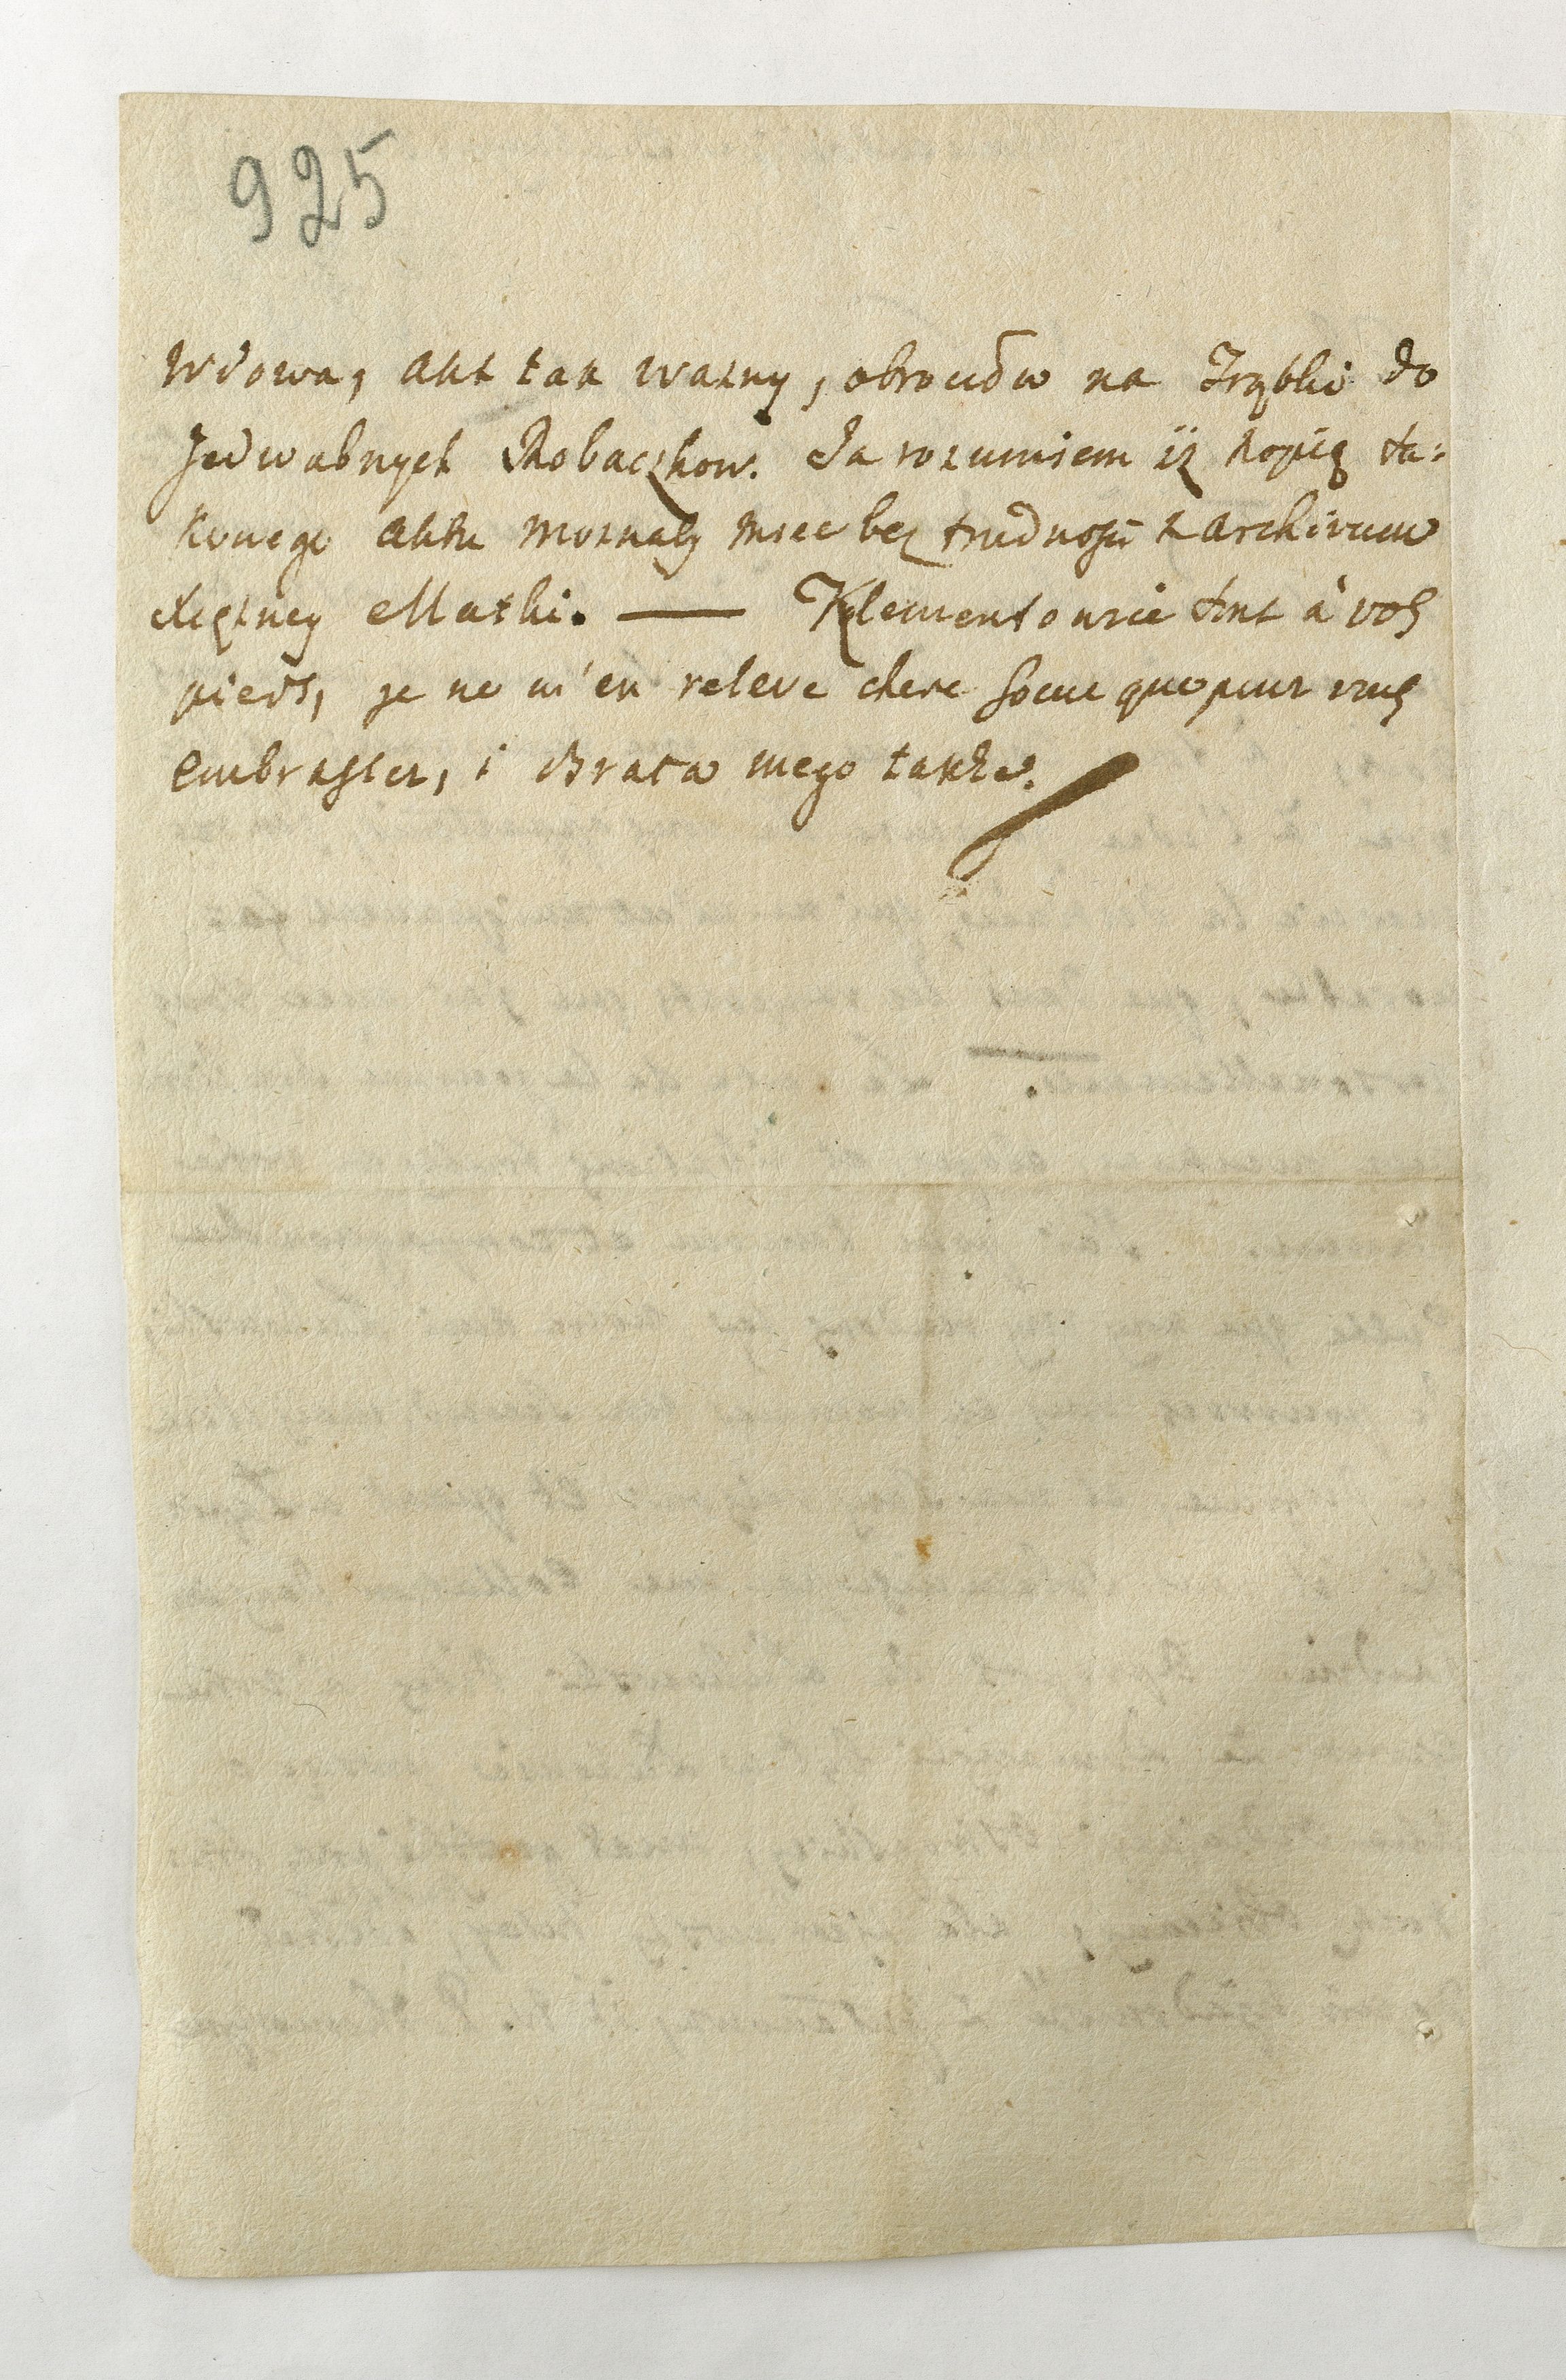 925
Wdowa, akt tak wazny, obrociōw na Trąbki do
Jedwabnych Robaczkow. Ja rozumiem iz kopię ta:
kowego aktu moznaby miec bez trudnosci z Archivum
Xięzney Matki. — Klementowie sont à vos
pieds, je ne m'en releve chere soeur que pour vous
embrasser, i Brata mego takze.